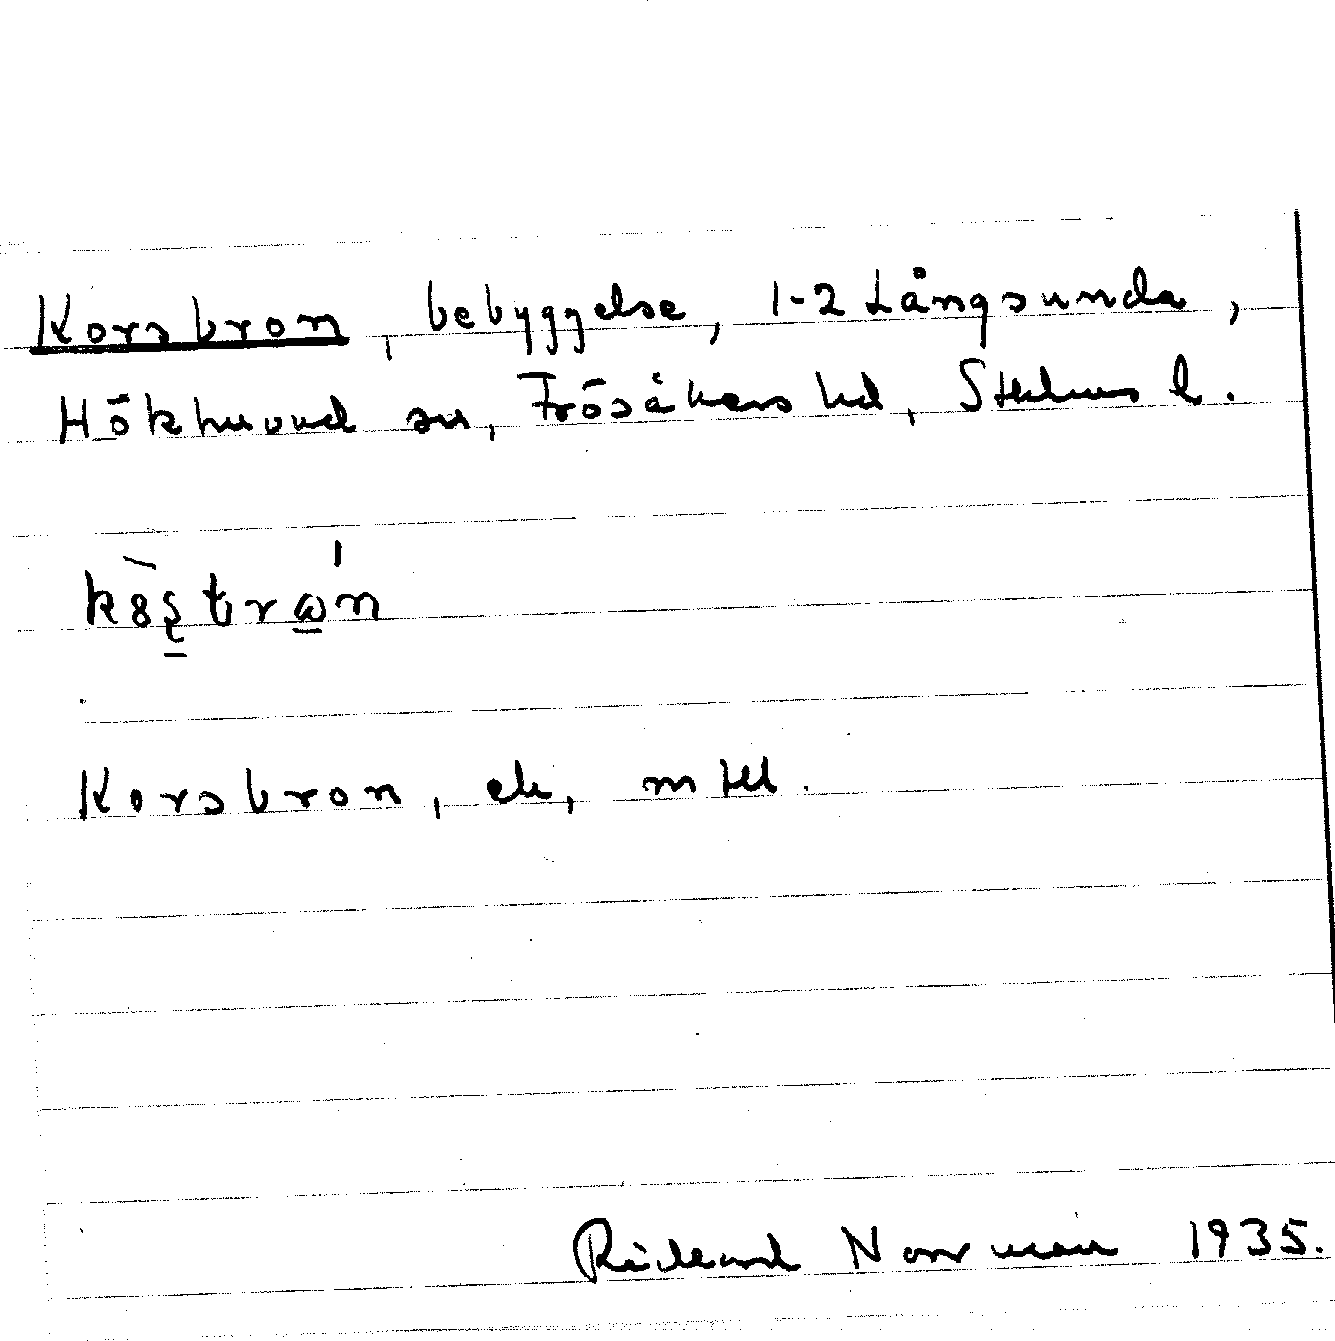 Korsbron, bebyggelse, 1-2 Långsunda,
Hökhuvud sn, Frösåkers hd, Sthlms l.
Korsbron, ek, mtbl.
Rickard Norrman 1935.